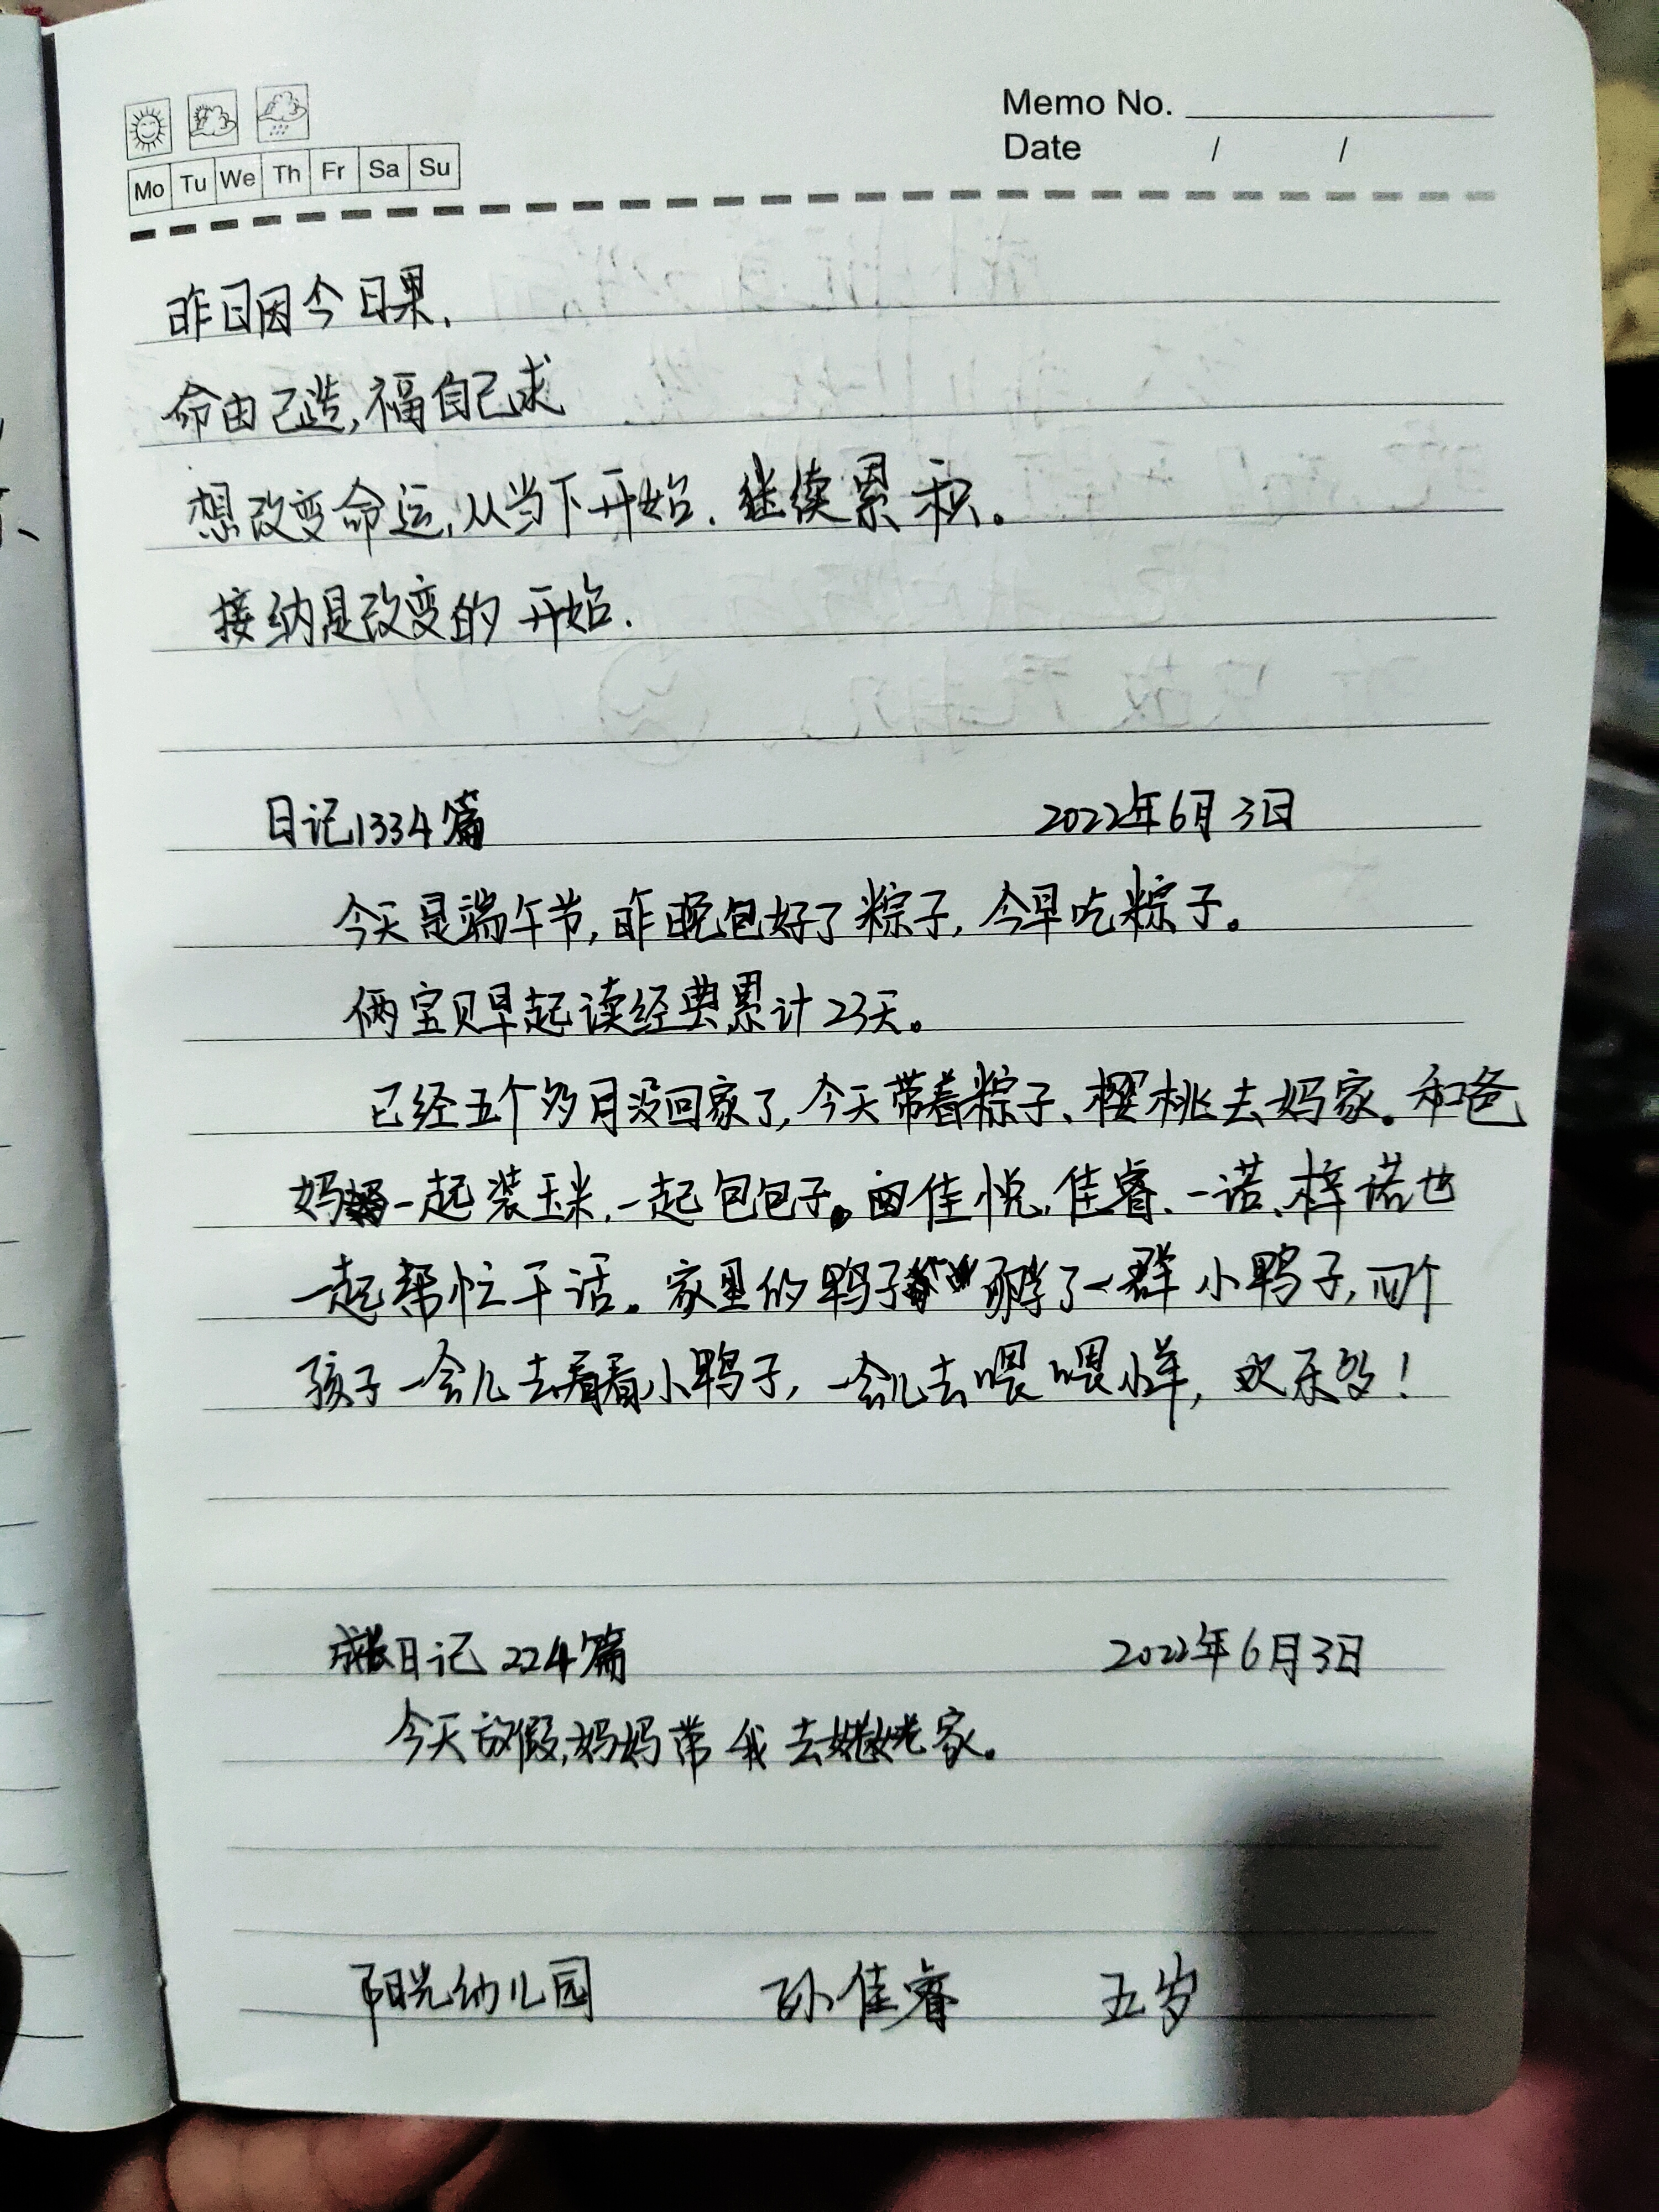 Memo No.
Date / /
Mo Tu We Th Fr Sa Su
昨日因今日果.
命由己造,福自己求
想改变命运,从当下开始.继续累积。
接纳是改变的开始.
日记1334篇 2022年6月3日
今天是端午节,昨晚包好了粽子,今早吃粽子。
俩宝贝早起读经典累计23天。
已经五个多月没回家了,今天带着粽子、樱桃去妈家。和爸
妈一起装玉米,一起包包子。佳悦,佳睿、一诺、梓诺也
一起帮忙干话。家里的鸭子孵了一群小鸭子,四个
孩子一会儿去看看小鸭子,一会儿去喂喂小羊,欢乐多!
成长日记 224篇 2022年6月3日
今天放假,妈妈带我去姥姥家。
阳光幼儿园 孙佳睿 五岁